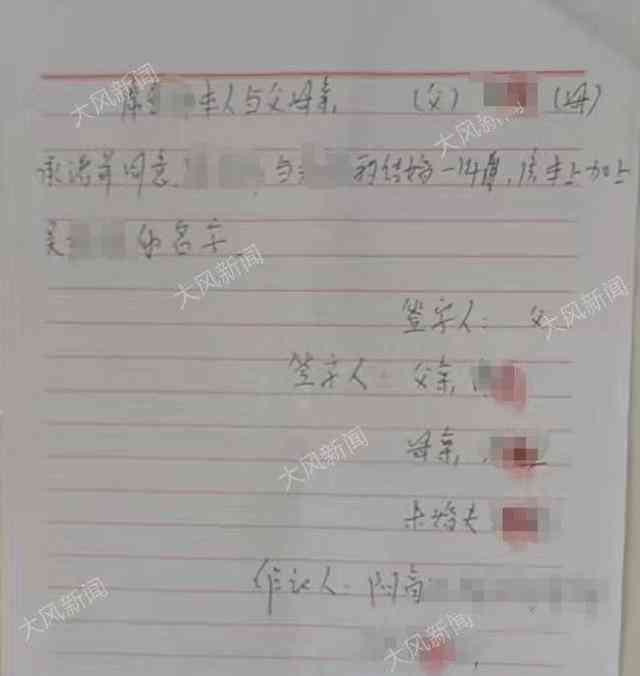 大风新闻
本人与父母亲 (父) (母)
大风新闻
承诺并同意 与 的结婚一件事,房本上加上
吴 的名字
大风新闻
签字人: 父
大风新闻
签字人 父亲
母亲
大风新闻
未婚夫
作证人:
大风新闻
大风新闻